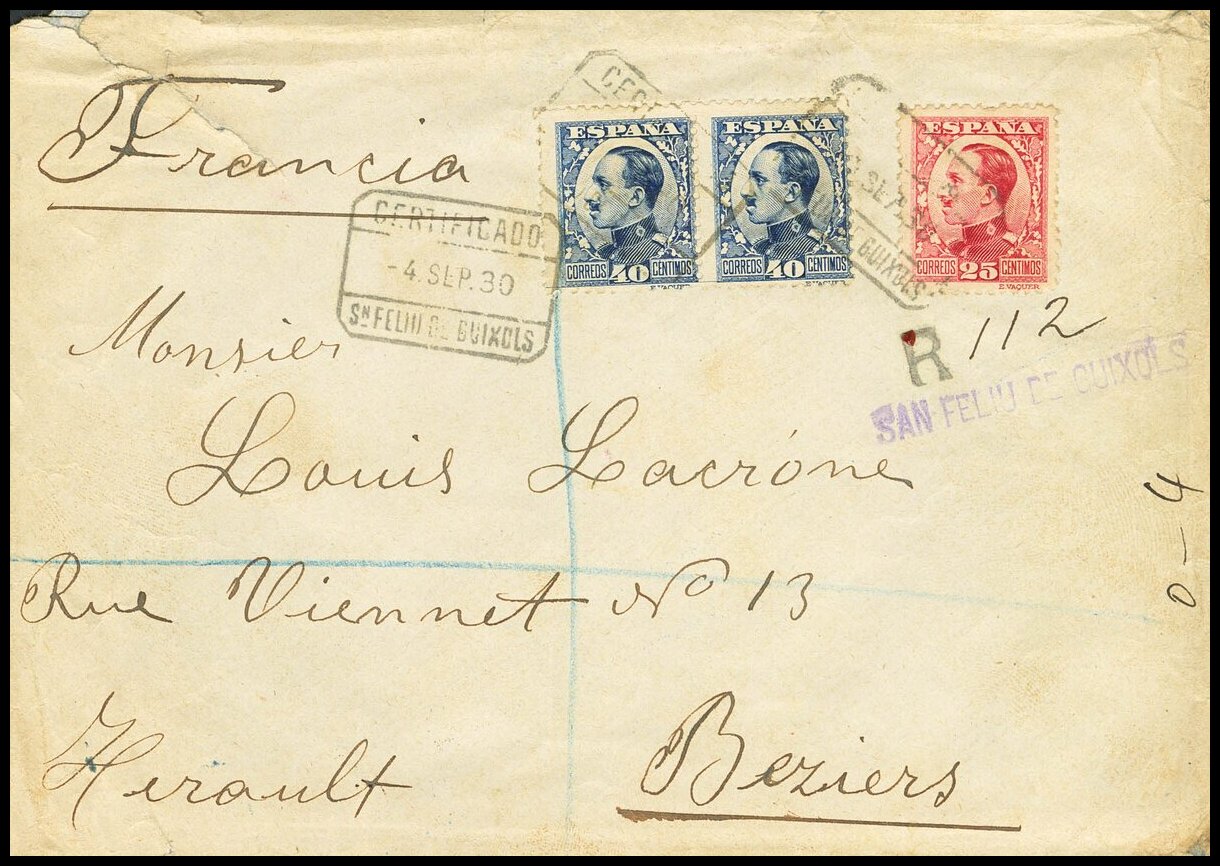 Francia
ESPAÑA
CORREOS 40 CENTIMOS
E. VAQUER
ESPAÑA
CORREOS 40 CENTIMOS
E. VAQUER
ESPAÑA
CORREOS 25 CENTIMOS
E. VAQUER
CERTIFICADO
-4. SEP. 30
Sn FELIU DE GUIXOLS
SEP.
GUIXOLS
R 112
SAN FELIU DE GUIXOLS
Monsier
Louis Lacróne
Rue Viennet No 13
Herault
Beziers
0-4